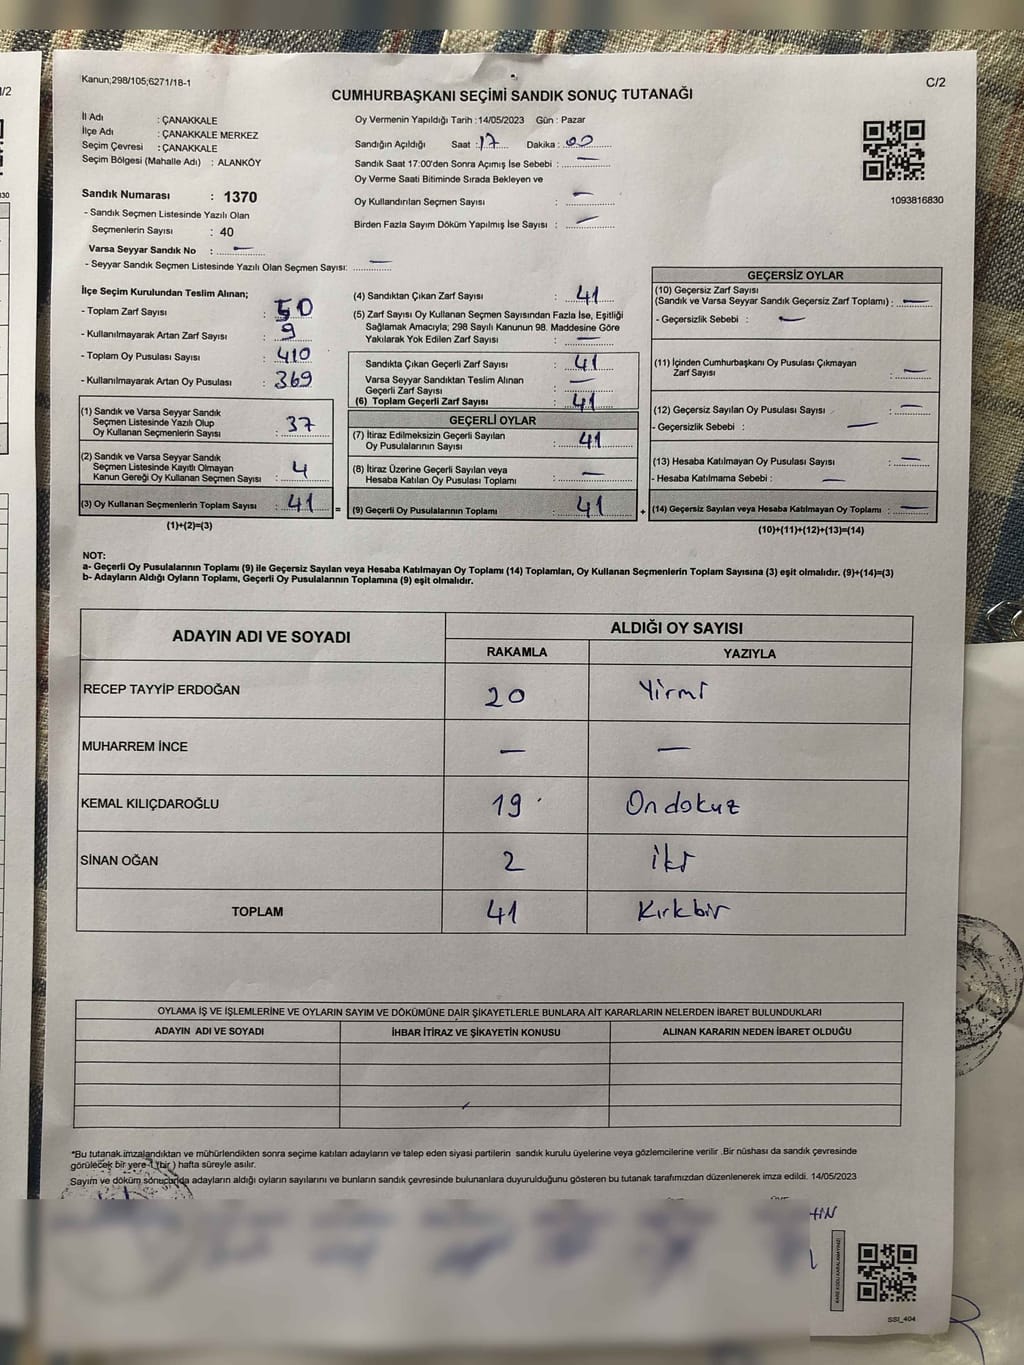 Kanun;298/105;6271/18-1
C/2
CUMHURBAŞKANI SEÇİMİ SANDIK SONUÇ TUTANAĞI
İl Adı : ÇANAKKALE
İlçe Adı : ÇANAKKALE MERKEZ
Seçim Çevresi : ÇANAKKALE
Seçim Bölgesi (Mahalle Adı) : ALANKÖY
Sandık Numarası : 1370
- Sandık Seçmen Listesinde Yazılı Olan
Seçmenlerin Sayısı : 40
Varsa Seyyar Sandık No : —
- Seyyar Sandık Seçmen Listesinde Yazılı Olan Seçmen Sayısı: —
Oy Vermenin Yapıldığı Tarih :14/05/2023 Gün : Pazar
Sandığın Açıldığı Saat : 17 Dakika : 00
Sandık Saat 17:00'den Sonra Açımış İse Sebebi : —
Oy Verme Saati Bitiminde Sırada Bekleyen ve
Oy Kullandırılan Seçmen Sayısı : —
Birden Fazla Sayım Döküm Yapılmış İse Sayısı : —
1093816830
İlçe Seçim Kurulundan Teslim Alınan;
- Toplam Zarf Sayısı : 50
- Kullanılmayarak Artan Zarf Sayısı : 9
- Toplam Oy Pusulası Sayısı : 410
- Kullanılmayarak Artan Oy Pusulası : 369
(1) Sandık ve Varsa Seyyar Sandık
Seçmen Listesinde Yazılı Olup
Oy Kullanan Seçmenlerin Sayısı : 37
(2) Sandık ve Varsa Seyyar Sandık
Seçmen Listesinde Kayıtlı Olmayan
Kanun Gereği Oy Kullanan Seçmen Sayısı : 4
(3) Oy Kullanan Seçmenlerin Toplam Sayısı : 41
(1)+(2)=(3)
(4) Sandıktan Çıkan Zarf Sayısı : 41
(5) Zarf Sayısı Oy Kullanan Seçmen Sayısından Fazla İse, Eşitliği
Sağlamak Amacıyla; 298 Sayılı Kanunun 98. Maddesine Göre
Yakılarak Yok Edilen Zarf Sayısı : —
Sandıkta Çıkan Geçerli Zarf Sayısı : 41
Varsa Seyyar Sandıktan Teslim Alınan
Geçerli Zarf Sayısı : —
(6) Toplam Geçerli Zarf Sayısı : 41
GEÇERLİ OYLAR
(7) İtiraz Edilmeksizin Geçerli Sayılan
Oy Pusulalarının Sayısı : 41
(8) İtiraz Üzerine Geçerli Sayılan veya
Hesaba Katılan Oy Pusulası Toplamı : —
= (9) Geçerli Oy Pusulalarının Toplamı : 41
GEÇERSİZ OYLAR
(10) Geçersiz Zarf Sayısı
(Sandık ve Varsa Seyyar Sandık Geçersiz Zarf Toplamı) : —
- Geçersizlik Sebebi : —
(11) İçinden Cumhurbaşkanı Oy Pusulası Çıkmayan
Zarf Sayısı : —
(12) Geçersiz Sayılan Oy Pusulası Sayısı : —
- Geçersizlik Sebebi : —
(13) Hesaba Katılmayan Oy Pusulası Sayısı : —
- Hesaba Katılmama Sebebi : —
+ (14) Geçersiz Sayılan veya Hesaba Katılmayan Oy Toplamı : —
(10)+(11)+(12)+(13)=(14)
NOT:
a- Geçerli Oy Pusulalarının Toplamı (9) ile Geçersiz Sayılan veya Hesaba Katılmayan Oy Toplamı (14) Toplamları, Oy Kullanan Seçmenlerin Toplam Sayısına (3) eşit olmalıdır. (9)+(14)=(3)
b- Adayların Aldığı Oyların Toplamı, Geçerli Oy Pusulalarının Toplamına (9) eşit olmalıdır.
ADAYIN ADI VE SOYADI
ALDIĞI OY SAYISI
RAKAMLA YAZIYLA
RECEP TAYYİP ERDOĞAN 20 Yirmi
MUHARREM İNCE — —
KEMAL KILIÇDAROĞLU 19 Ondokuz
SİNAN OĞAN 2 İki
TOPLAM 41 Kırkbir
OYLAMA İŞ VE İŞLEMLERİNE VE OYLARIN SAYIM VE DÖKÜMÜNE DAİR ŞİKAYETLERLE BUNLARA AİT KARARLARIN NELERDEN İBARET BULUNDUKLARI
ADAYIN ADI VE SOYADI İHBAR İTİRAZ VE ŞİKAYETİN KONUSU ALINAN KARARIN NEDEN İBARET OLDUĞU
*Bu tutanak imzalandıktan ve mühürlendikten sonra seçime katılan adayların ve talep eden siyasi partilerin sandık kurulu üyelerine veya gözlemcilerine verilir .Bir nüshası da sandık çevresinde
görülecek bir yere 1 (bir) hafta süreyle asılır.
Sayım ve döküm sonucunda adayların aldığı oyların sayılarını ve bunların sandık çevresinde bulunanlara duyurulduğunu gösteren bu tutanak tarafımızdan düzenlenerek imza edildi. 14/05/2023
SSI_404